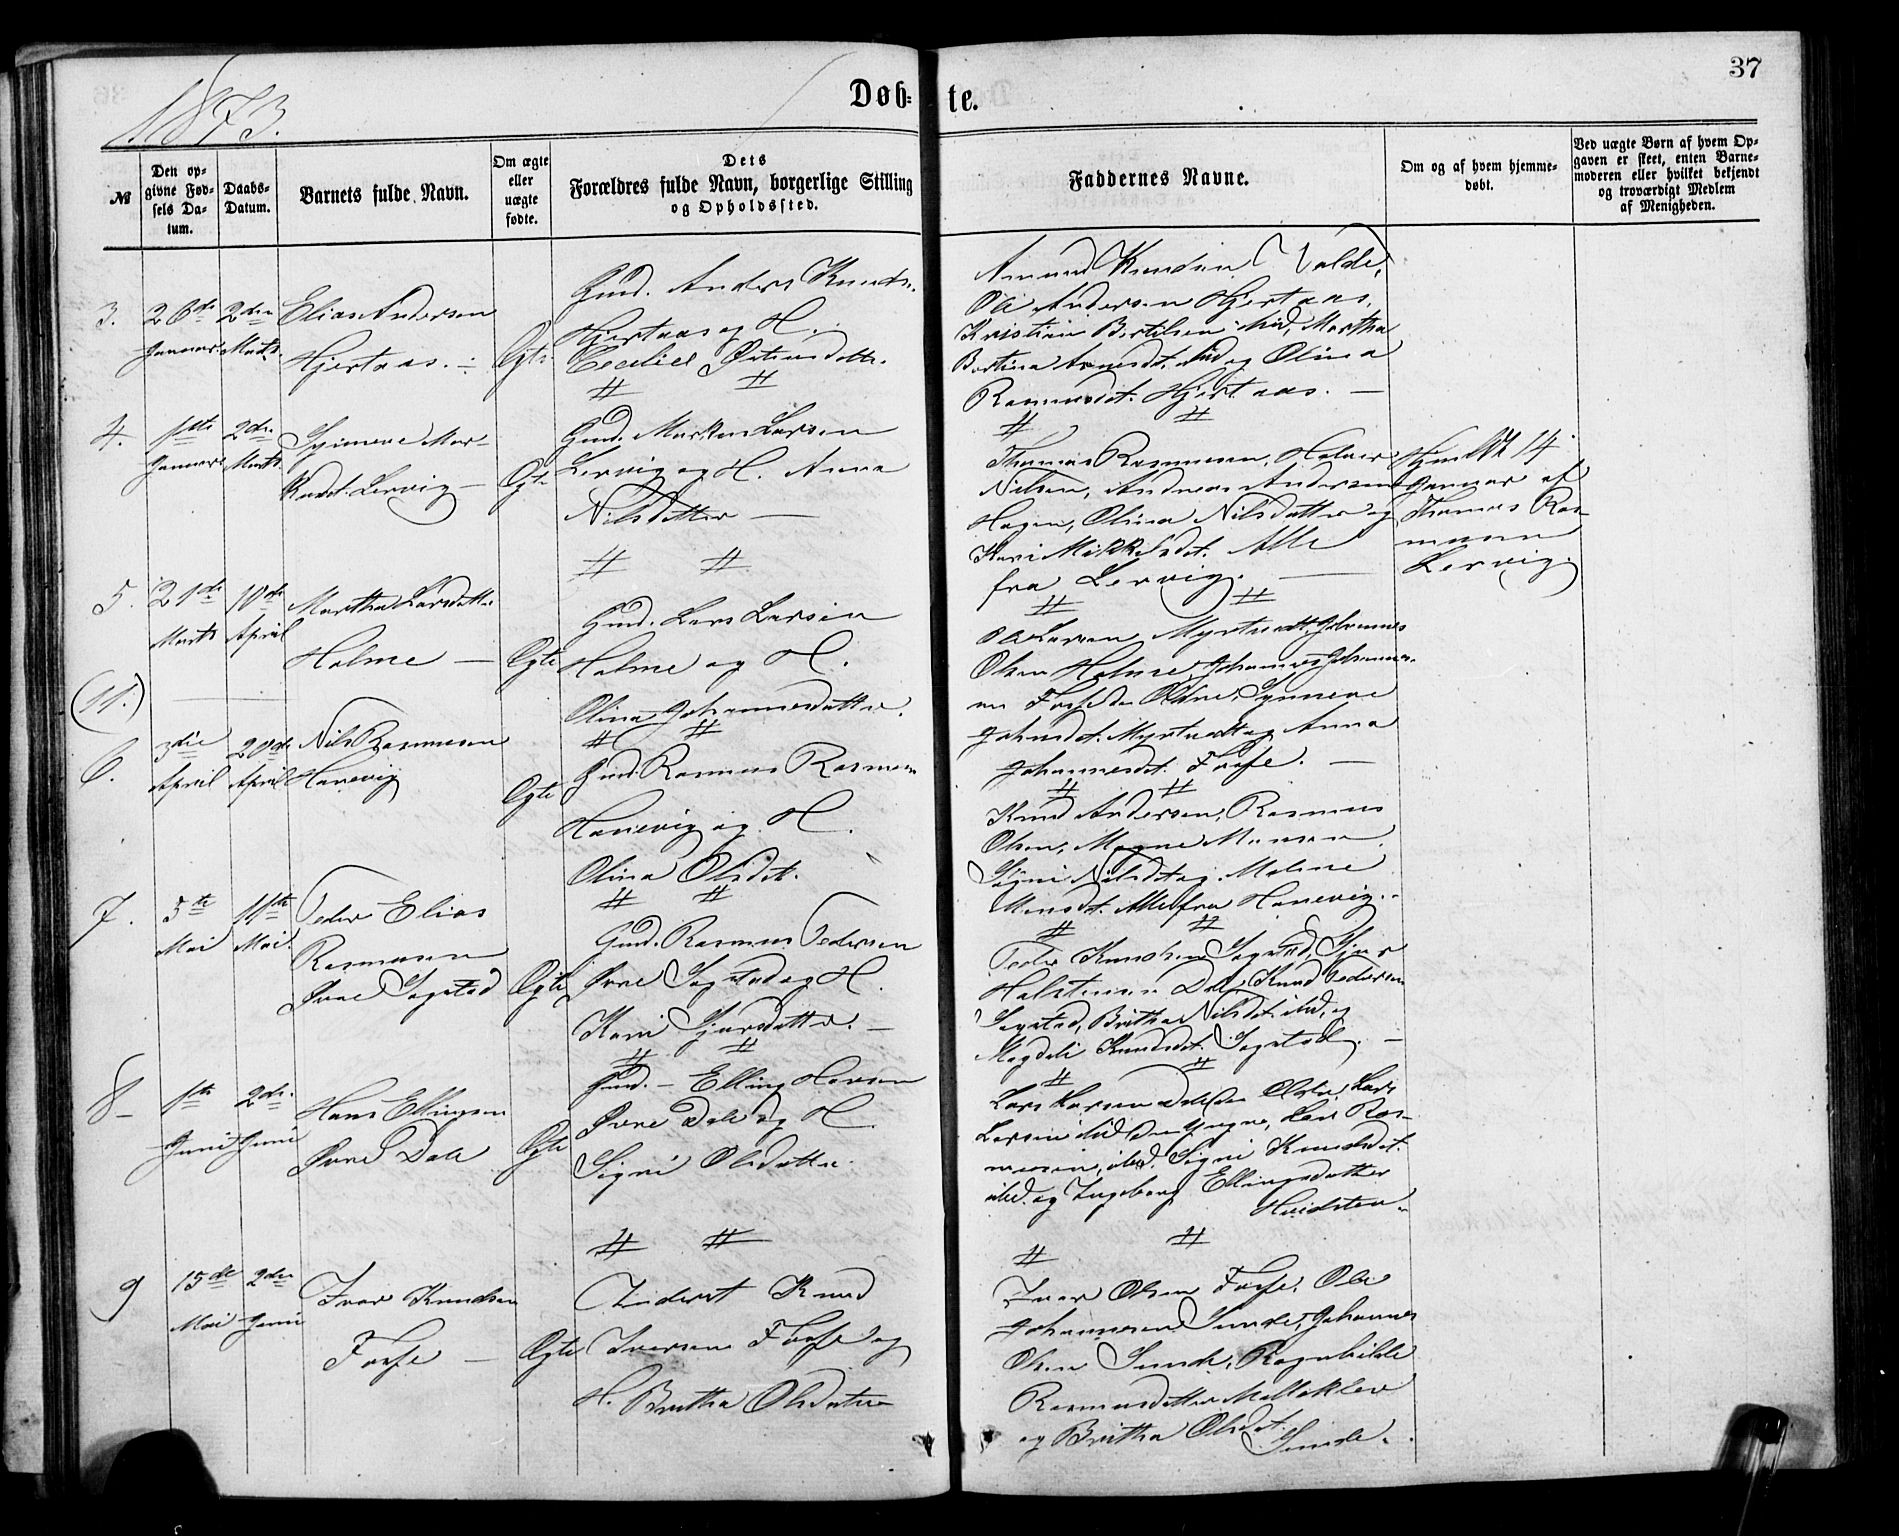 37
1873.
Døb- te.
№
Den op-
givne Fød-
sels Da-
tum.
Daabs-
Datum.
Barnets fulde Navn.
Om ægte
eller
uægte
fødte.
Dets
Forældres fulde Navn, borgerlige Stilling
og Opholdssted.
Faddernes Navne.
Om og af hvem hjemme-
døbt.
Ved uægte Børn af hvem Op-
gaven er skeet, enten Barne-
moderen eller hvilket bekjendt
og troværdigt Medlem
af Menigheden.
3.
26de
Januar
2den
Marts.
Elias Andersen
Hjertaas.
Ægte
Gmd. Anders Knuds.
Hjertaas og H.
Cecilie
Amund Knudsen Valde,
Ole Andersen Hjertaas,
Kristian Bertilsen ibid, Martha
Bertina ibid og Olina
Rasmusdt. Hjertaas. —
4.
1ste
Januar
2den
Marts
Mar-
kusdt. Lervig —
Ægte
Gmd. Markus Larsen
Lervig og H. Anna
Nilsdatter —
Thomas Rasmusen, Halvor
Nilsen, Andreas Andersen
Hagen, Olina Nilsdatter og
Kari Mikkelsdt. Alle
fra Lervig. —
Hjmdbt 14
Januar af
Thomas Ras-
musen
Lervig.
5.
21de
Marts
10de
April
Martha Larsdatter
Holme —
Ægte
Gmd. Lars Larsen
Holme og H.
Olina Johannesdatter.
Ole Larsen Myrtvedt, Johannes
Olsen Holme, Johannes Johannes-
en Fosse den Ældre, Synneve
Johnsdt. Myrtvedt og Anna
Johannesdt. Fosse. —
(11.)
6.
3die
April
20de
April
Nils Rasmusen
Hanevig
Ægte
Gmd. Rasmus Rasmusen
Hanevig og H.
Olina Olsdt.
Knud Andersen, Rasmus
Olsen, Mogne Monsen,
Signi Nilsdt og Malene
Monsdt. Alle fra Hanevig.
7.
5te
Mai
11te
Mai.
Peder Elias
Rasmusen
Øvre Sagstad
Ægte
Gmd. Rasmus Pedersen
Øvre Sagstad og H.
Kari Sjursdatter. —
Peder Knudsen Sagstad, Sjur
Halstensen Dale, Knud Pedersen
Sagstad, Britha Nilsdt. ibid, og
Magdeli Knudsdt. Sagstad. —
8-
1ste
Juni
2den
Juni
Hans Ellingsen
Øvre Dale
Ægte
Gmd. - Elling Hansen
Øvre Dale og H.
Signi Olsdatter.
Lars Larsen Dale den Ældre, Lars
Larsen ibid den Yngre, Lars Ras-
musen, ibid. Signi Knudsdt.
ibid. og Ingeborg Ellingsdatter
Hvidsten.
9
15de
Mai
2den
Juni
Ivar Knudsen
Fosse —
Ægte
Inderst Knud
Iversen Fosse og
H. Britha Olsdatter
Ivar Olsen Fosse, Ole
Johannesen Sunde, Johannes
Olsen Sunde, Ragnhilde
Rasmusdatter Mollekleiv
og Britha Olsdt.
Sunde.